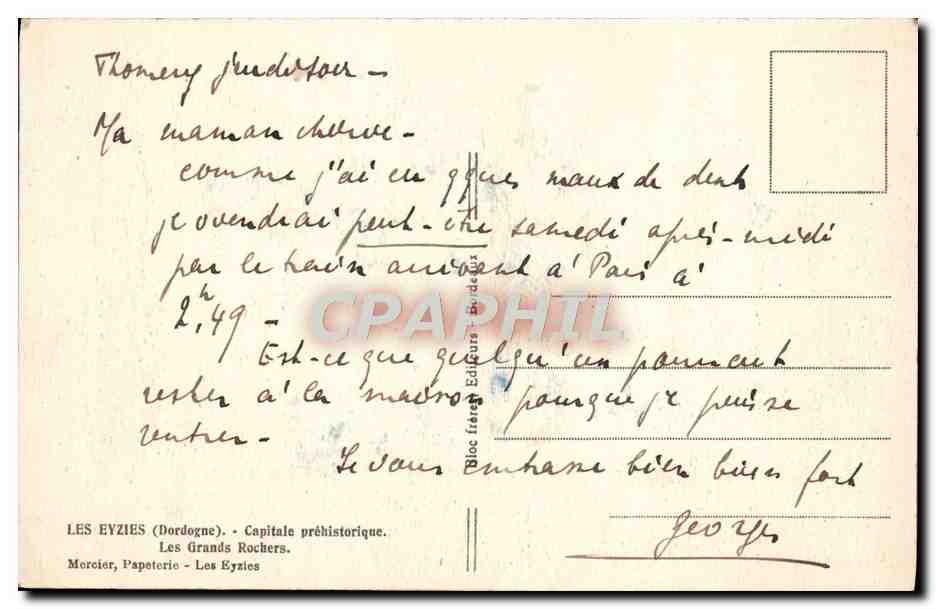 Thomery jeudi soir -
Ma maman chérie -
comme j'ai eu qques maux de dents
je viendrai peut-être samedi après-midi
par le train arrivant à Paris à
2h,49 -
Est-ce que quelqu'un pourrait
rester à la maison pour que je puisse
rentrer -
Je vous embrasse bien bien fort
Georges
CPAPHIL
Bloc frères Editeurs - Bordeaux
LES EYZIES (Dordogne). - Capitale préhistorique.
Les Grands Rochers.
Mercier, Papeterie - Les Eyzies